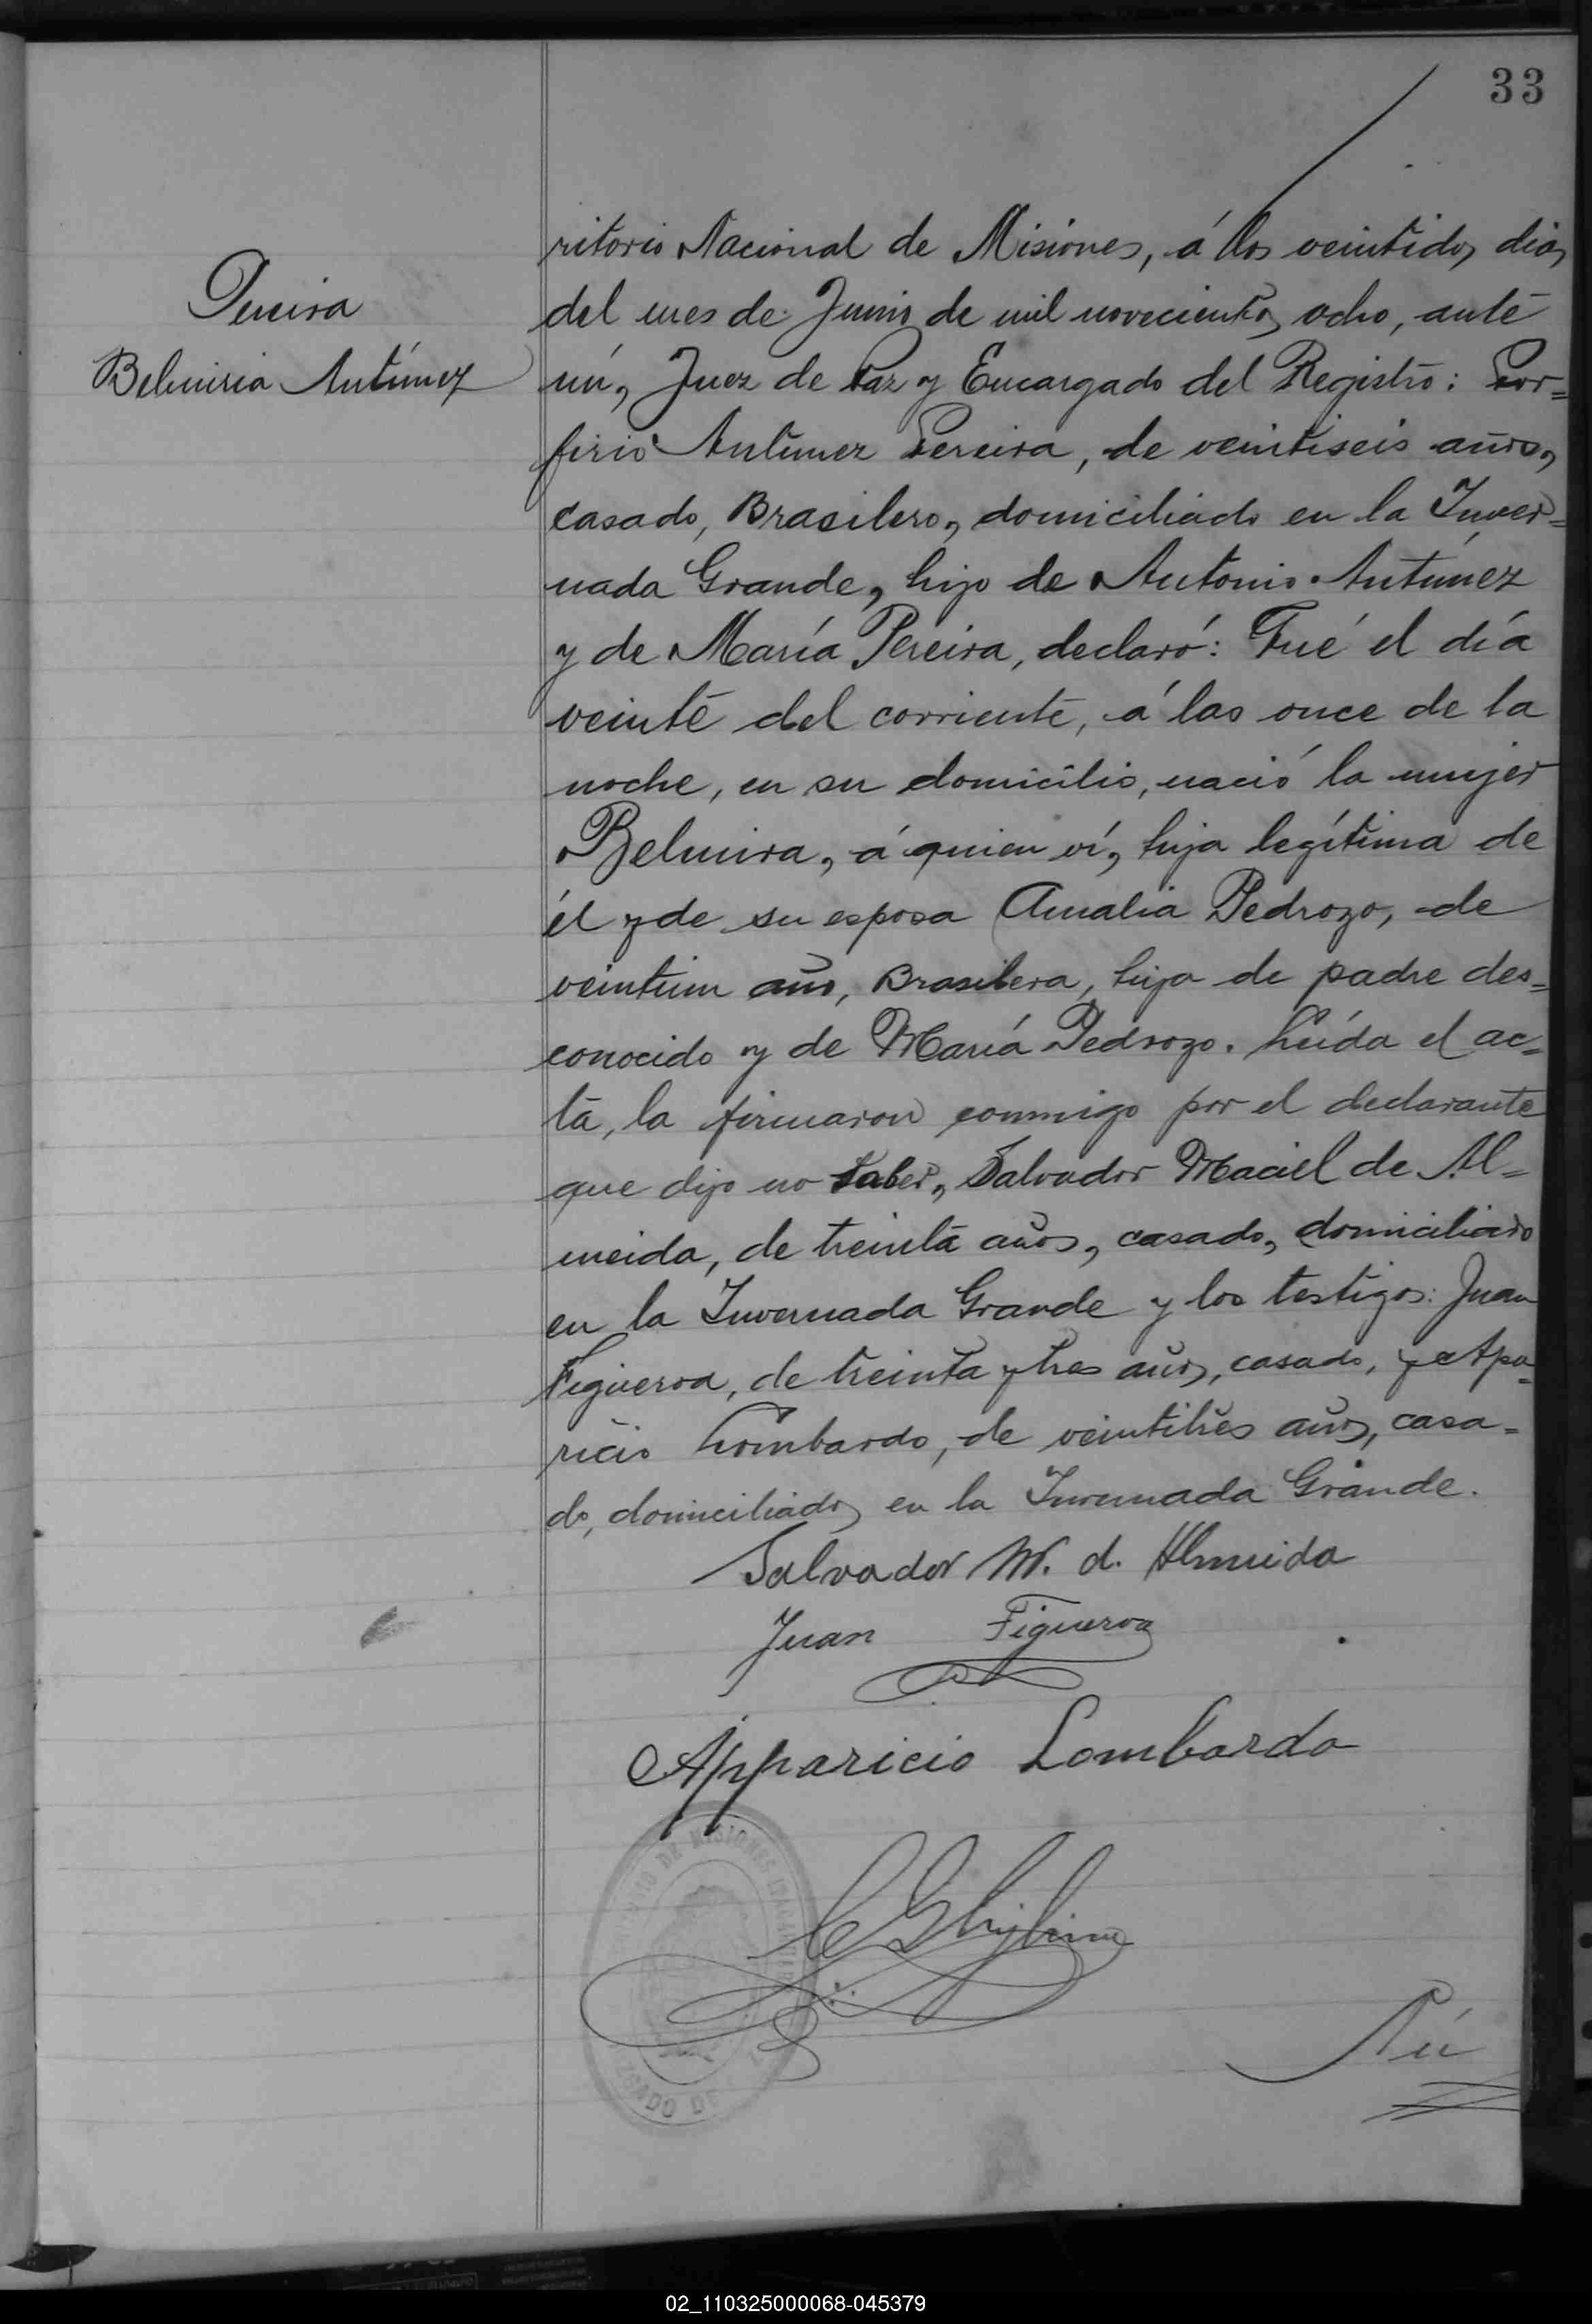 33
Pereira
Belmiria Antúnez
ritorio Nacional de Misiones, á los veintidos dias
del mes de Junio de mil novecientos ocho, ante
mí, Juez de Paz y Encargado del Registro: Por=
firio Antunez Pereira, de veintiseis años,
casado, Brasilero, domiciliado en la Inver=
nada Grande, hijo de Antonio Antúnez
y de María Pereira, declaró: Fué el día
veinte del corriente, á las once de la
noche, en su domicilio, nació la mujer
Belmira, á quien ví, hija legítima de
él y de su esposa Amalia Pedrozo, de
veintiun años, Brasilera, hija de padre des=
conocido y de María Pedrozo. Leída el ac=
ta, la firmaron conmigo por el declarante
que dijo no saber, Salvador Maciel de Al=
meida, de treinta años, casado, domiciliado
en la Invernada Grande y los testigos: Juan
Figueroa, de treinta y tres años, casado, y Apa=
ricio Lombardo, de veintitres años, casa=
do, domiciliados en la Invernada Grande.
Salvador M. d. Almeida
Juan Figueroa
Apparicio Lombardo
DE MISIONES
02_110325000068-045379